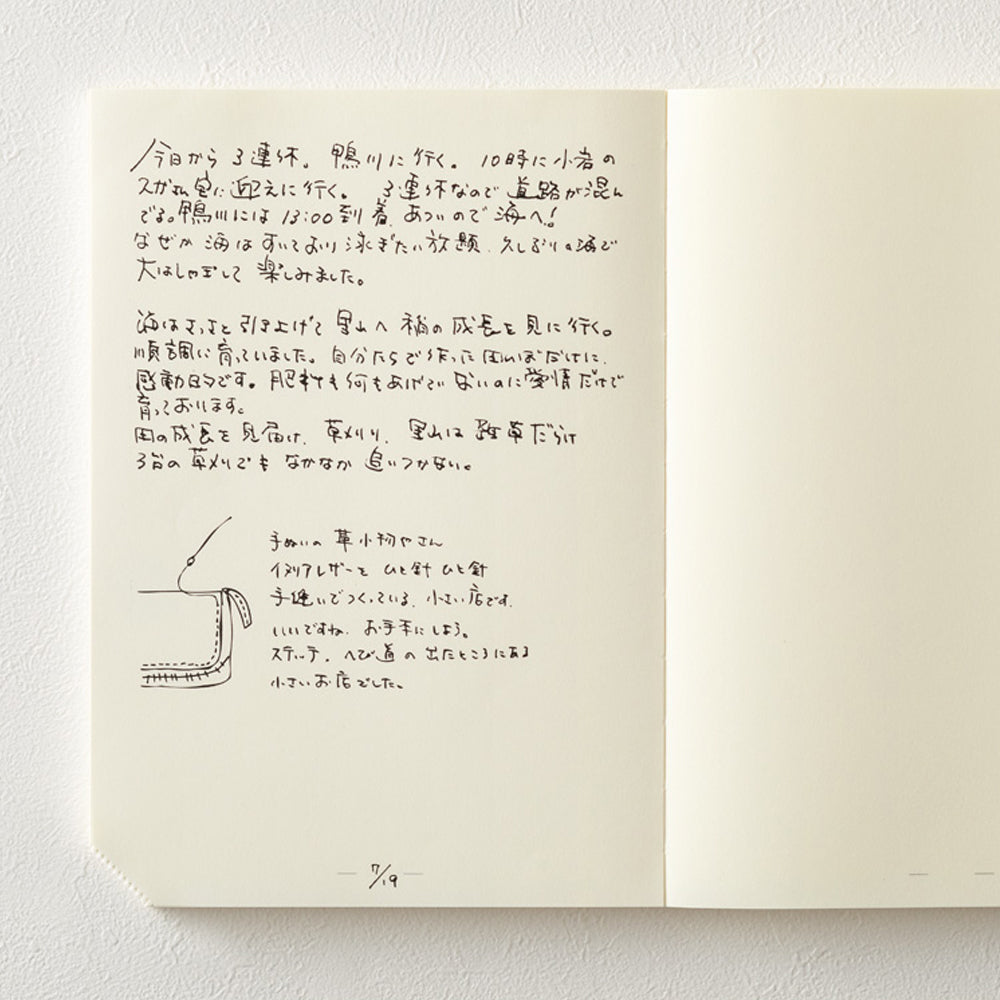 今日から 3連休。鴨川に行く。10時に小岩の
スガさん宅に迎えに行く。 3連休なので道路が混ん
でる。鴨川には 13:00到着、あついので海へ!
なぜか海はすいており泳ぎたい放題、久しぶりの海で
大はしゃぎして楽しみました。
海はさっさと引き上げて里山へ 稲の成長を見に行く。
順調に育っていました。自分たちで作った田んぼだけに、
感動的です。肥料も何もあげていないのに愛情だけで
育っております。
田の成長を見届け、草刈り、里山は雑草だらけ
3台の草刈りでもなかなか追いつかない。
手ぬいの 革小物やさん
イタリアレザーを ひと針 ひと針
手縫いでつくっている、小さい店です。
いいですね、お手本にしよう。
ステッチ、へび道の出たところにある
小さいお店でした。
7/19